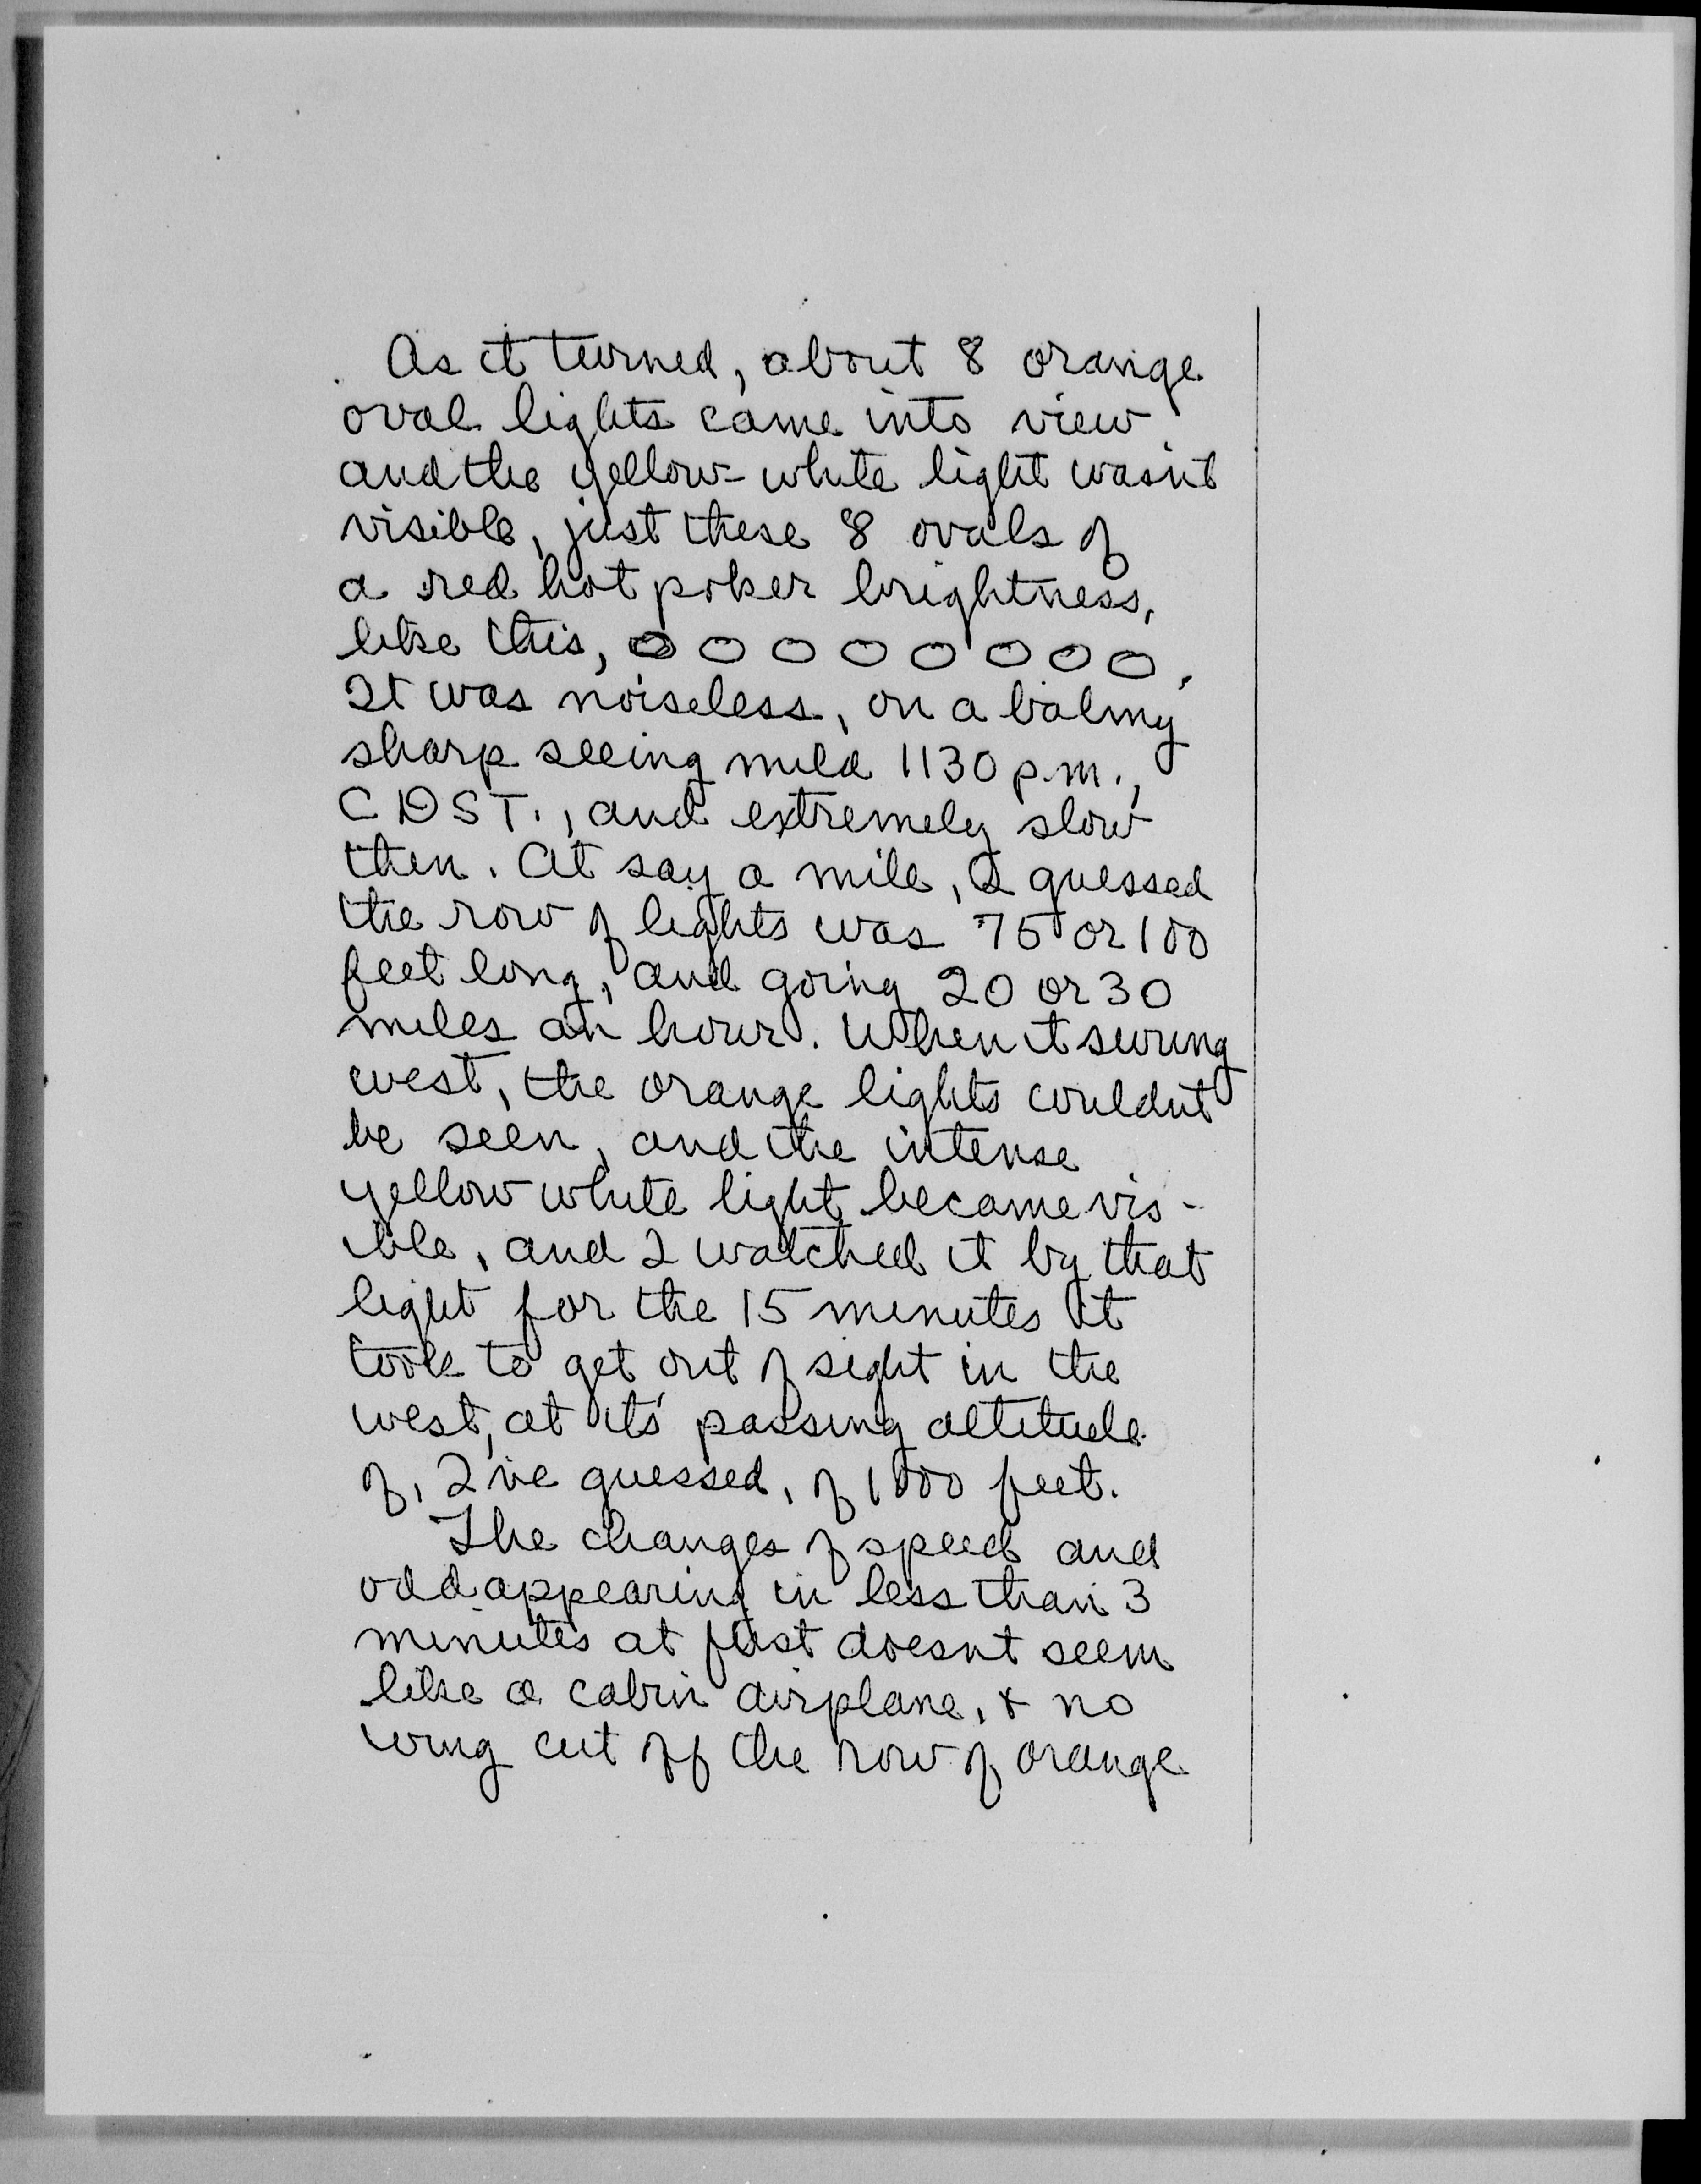 As it turned, about 8 orange
oval lights came into view
and the yellow-white light wasn't
visible, just these 8 ovals of
a red hot poker brightness,
like this, 0 0 0 0 0 0 0 0.
It was noiseless, on a balmy
sharp seeing mild 1130 p.m.,
CDST., and extremely slow
then. At say a mile, I guessed
the row of lights was 75 or 100
feet long, and going 20 or 30
miles an hour. When it swung
west, the orange lights couldn't
be seen, and the intense
yellow white light became vis-
ible, and I watched it by that
light for the 15 minutes it
took to get out of sight in the
west, at its' passing altitude
of, I've guessed, of 1000 feet.
The changes of speed and
odd appearing in less than 3
minutes at first doesnt seem
like a cabin airplane, & no
wing cut off the row of orange